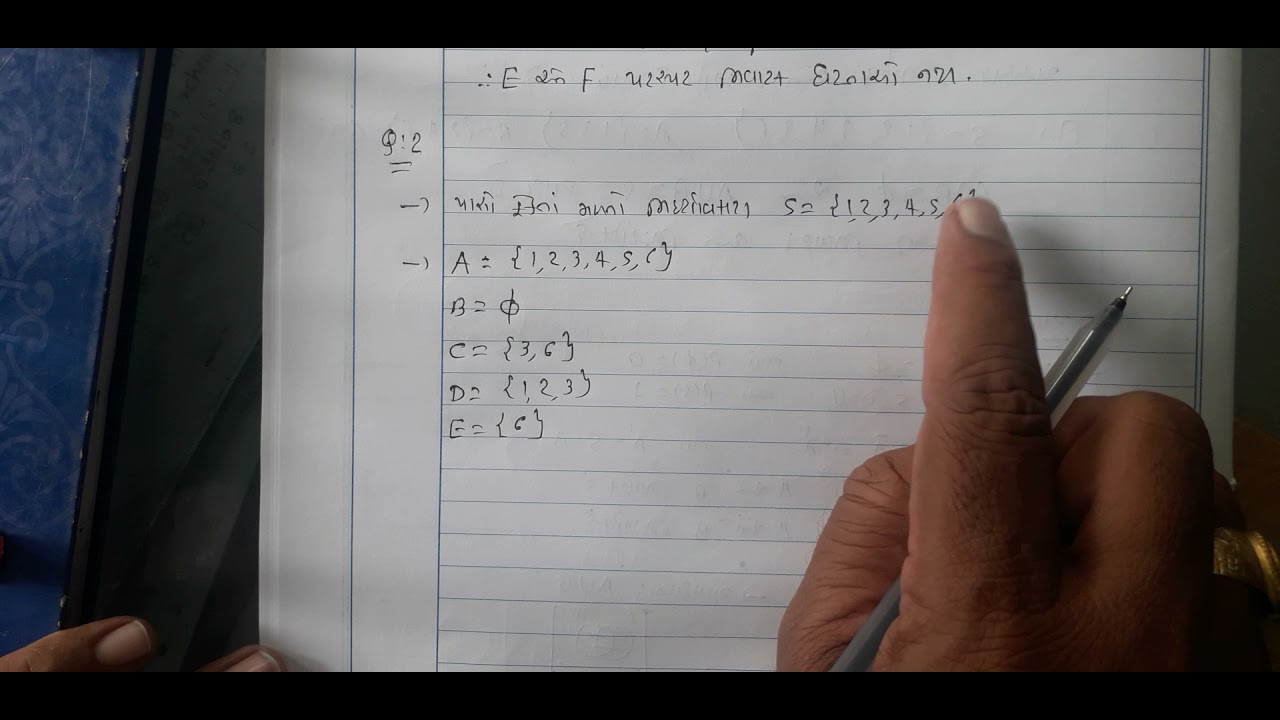 ∴ E અને F પરસ્પર નિવારક ઘટનાઓ નથી.
Q:2
→ પાસો ફેંકતાં મળતો નિદર્શાવકાશ S = {1,2,3,4,5,6}
→ A = {1,2,3,4,5,6}
B = ϕ
C = {3,6}
D = {1,2,3}
E = {6}